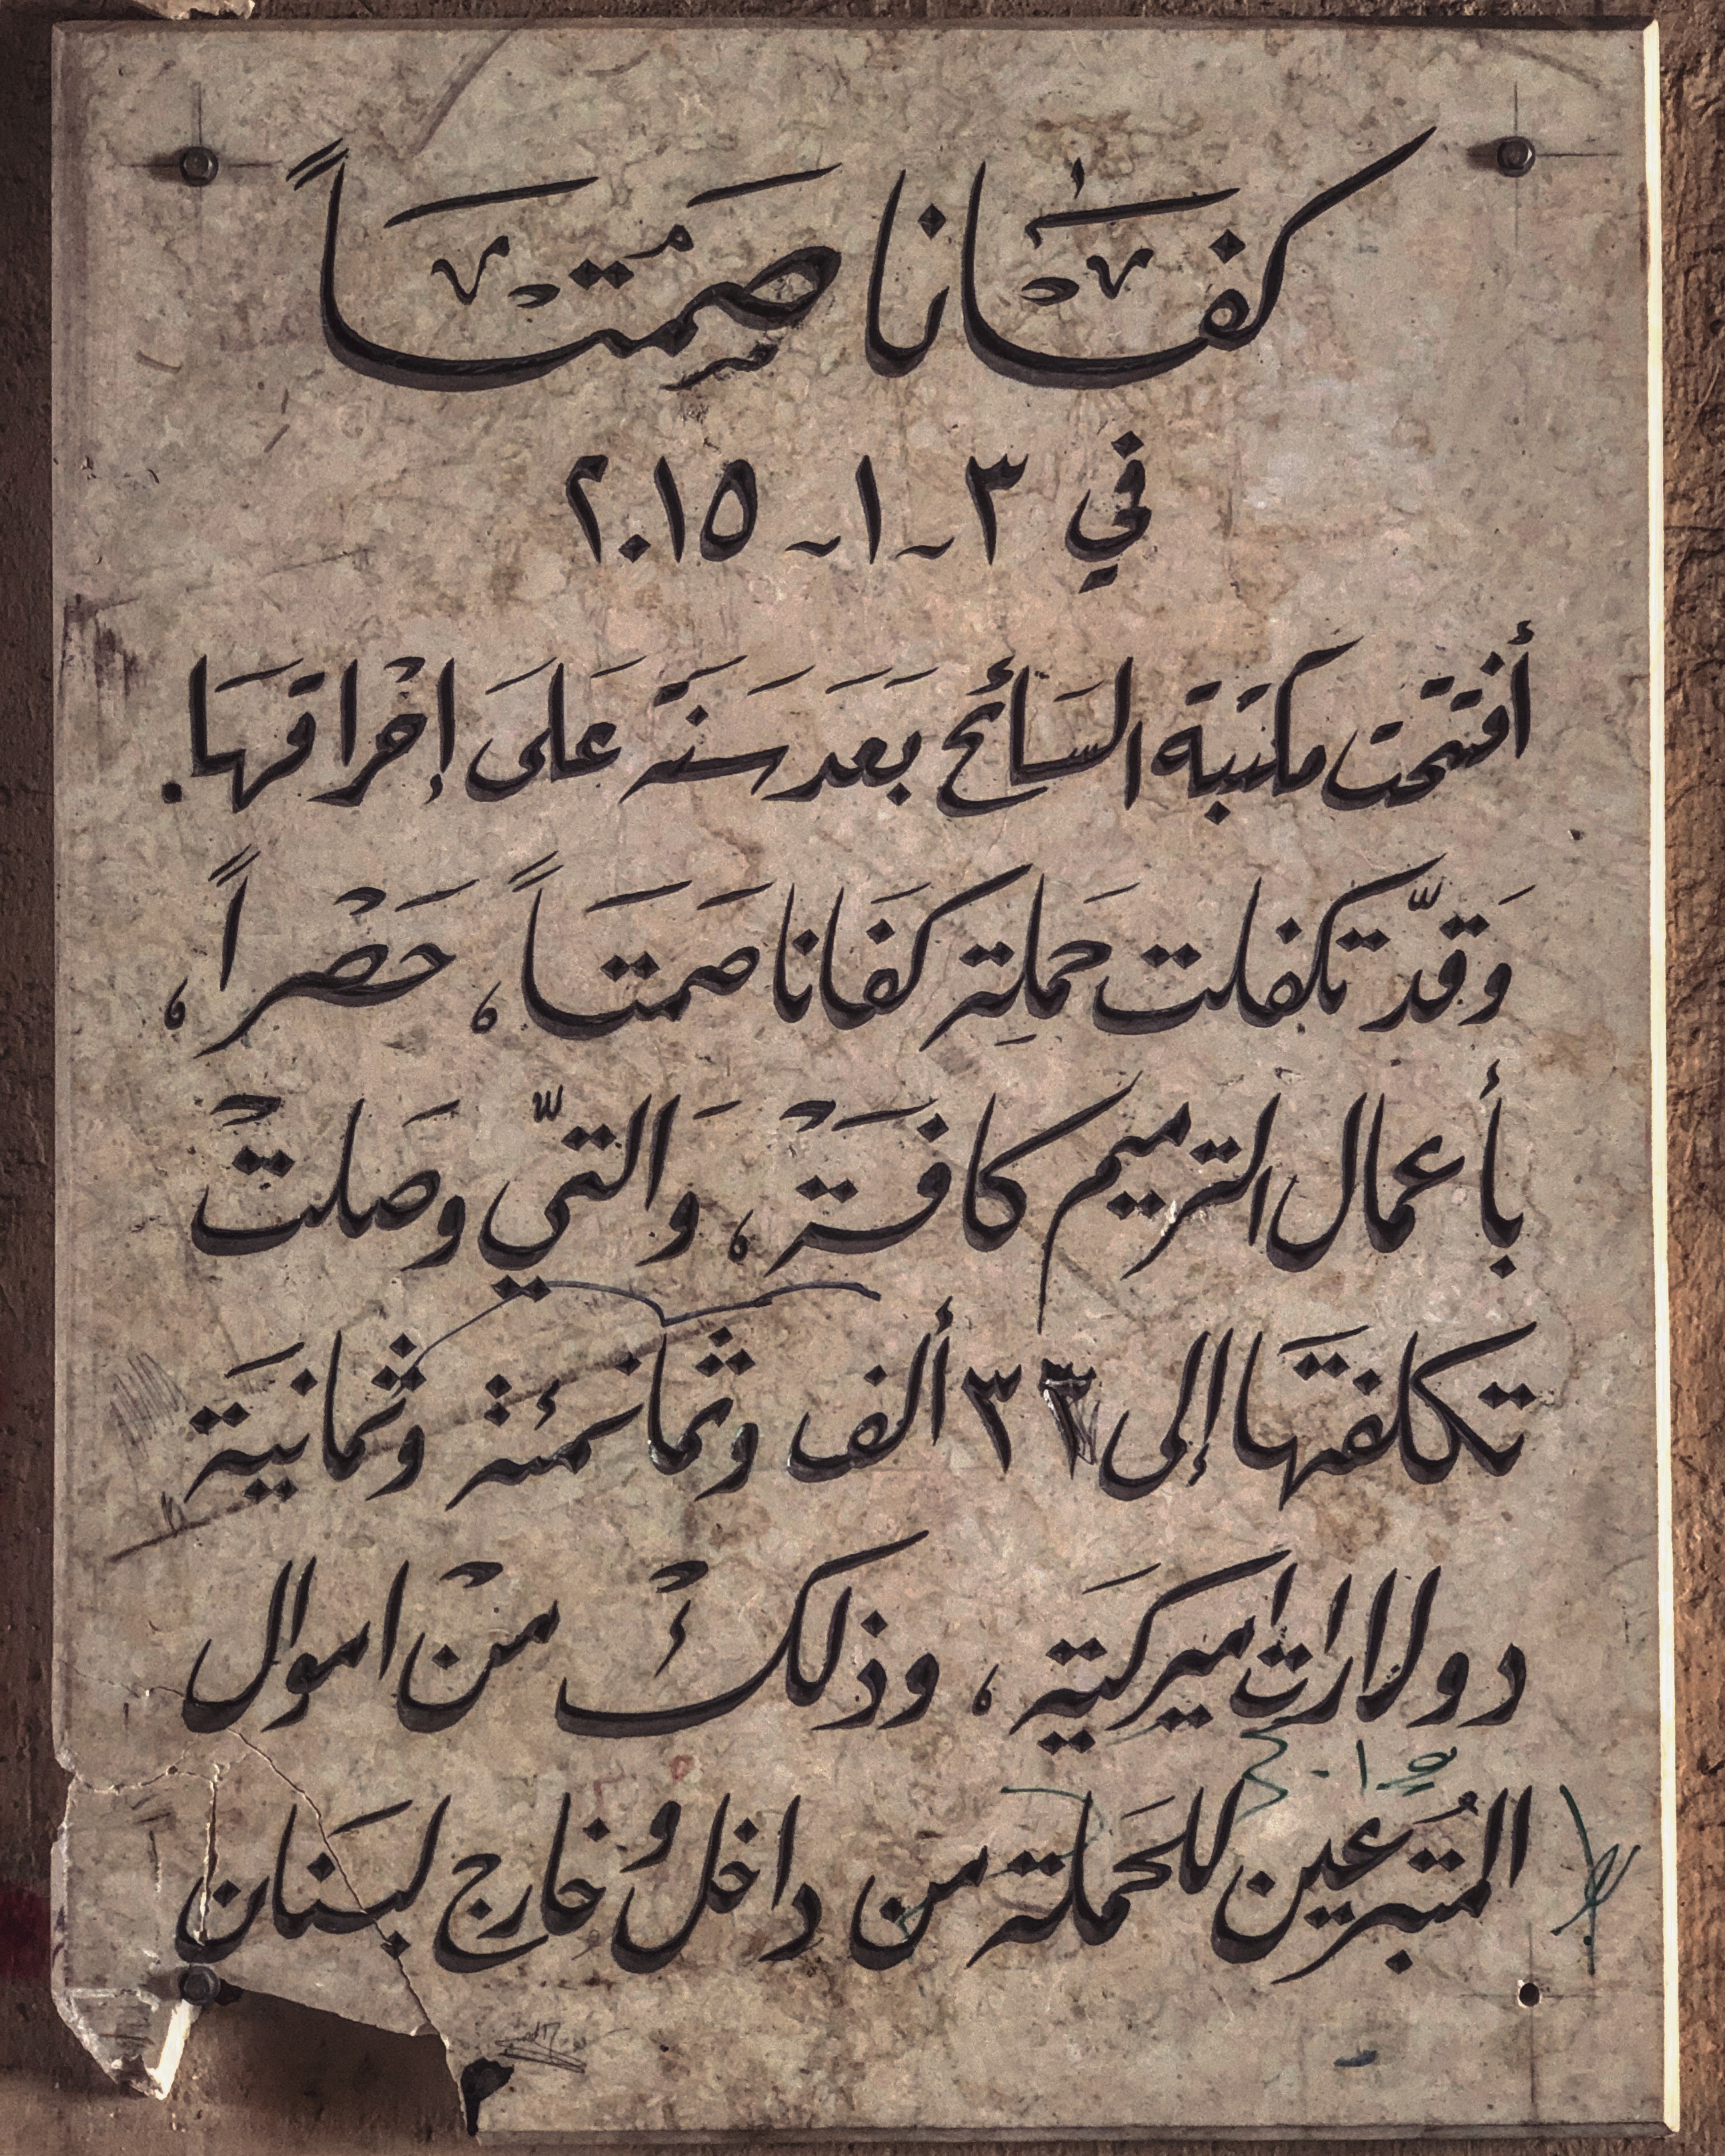 كفَانا صِمْتَاً
في ٣-١-٢٠١٥
أفتتحت مكتبة السَائح بعَد سَنَة عَلىَ إحْراقهَا.
وَقدّ تكفلت حَملِة كفَانا صَمتَاً، حَصْراً،
بأعمال الترميم كافَةْ، وَالتيّ وصَلتْ
تكلفتهَا إلى ٣٣ ألف وثمانمئة وثمانيَة
دولارات اميركَية، وذلكْ منْ اموال
المُتبرعين للحَملة من داخل وُخارج لبنَان